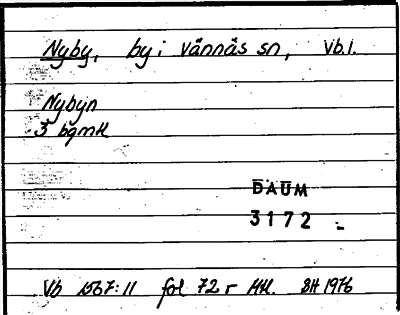 Nyby, by i Vännäs sn, Vb.l.
Nybyn
3 bgmH
DAUM
3172
Vb 1567:11 fol 72 r HH. BH 1976